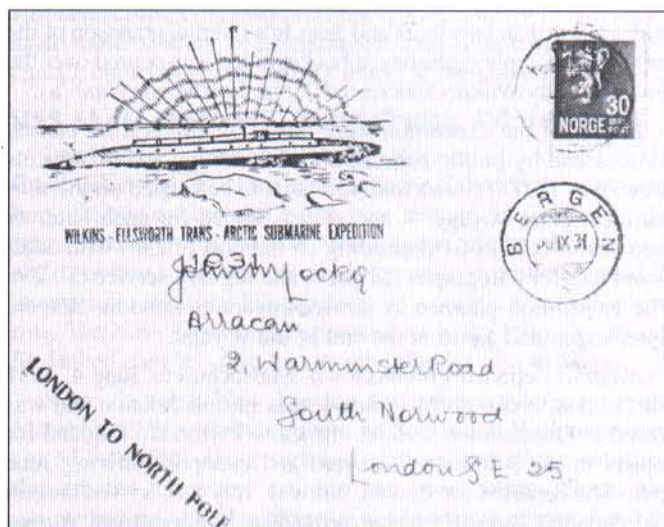 30
NORGE
BERGEN
IX 31
WILKINS - ELLSWORTH TRANS - ARCTIC SUBMARINE EXPEDITION
1931
Arracan
2, Warminster Road
South Norwood
London S.E. 25
LONDON TO NORTH POLE